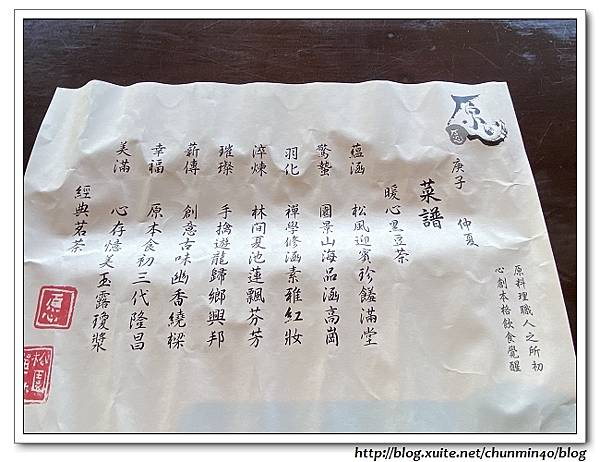 原心
庚子 仲夏
原料理職人之所初
心創本格飲食覺醒
菜譜
暖心黑豆茶
蘊涵 松風迎賓珍饈滿堂
驚蟄 園景山海品涵高崗
羽化 禪學修涵素雅紅妝
淬煉 林間夏池蓮飄芬芳
璀璨 手擒遊龍歸鄉興邦
薪傳 創意古味幽香繞樑
幸福 原本食初三代隆昌
美滿 心存憶美玉露瓊漿
經典茗茶
http://blog.xuite.net/chunmin40/blog